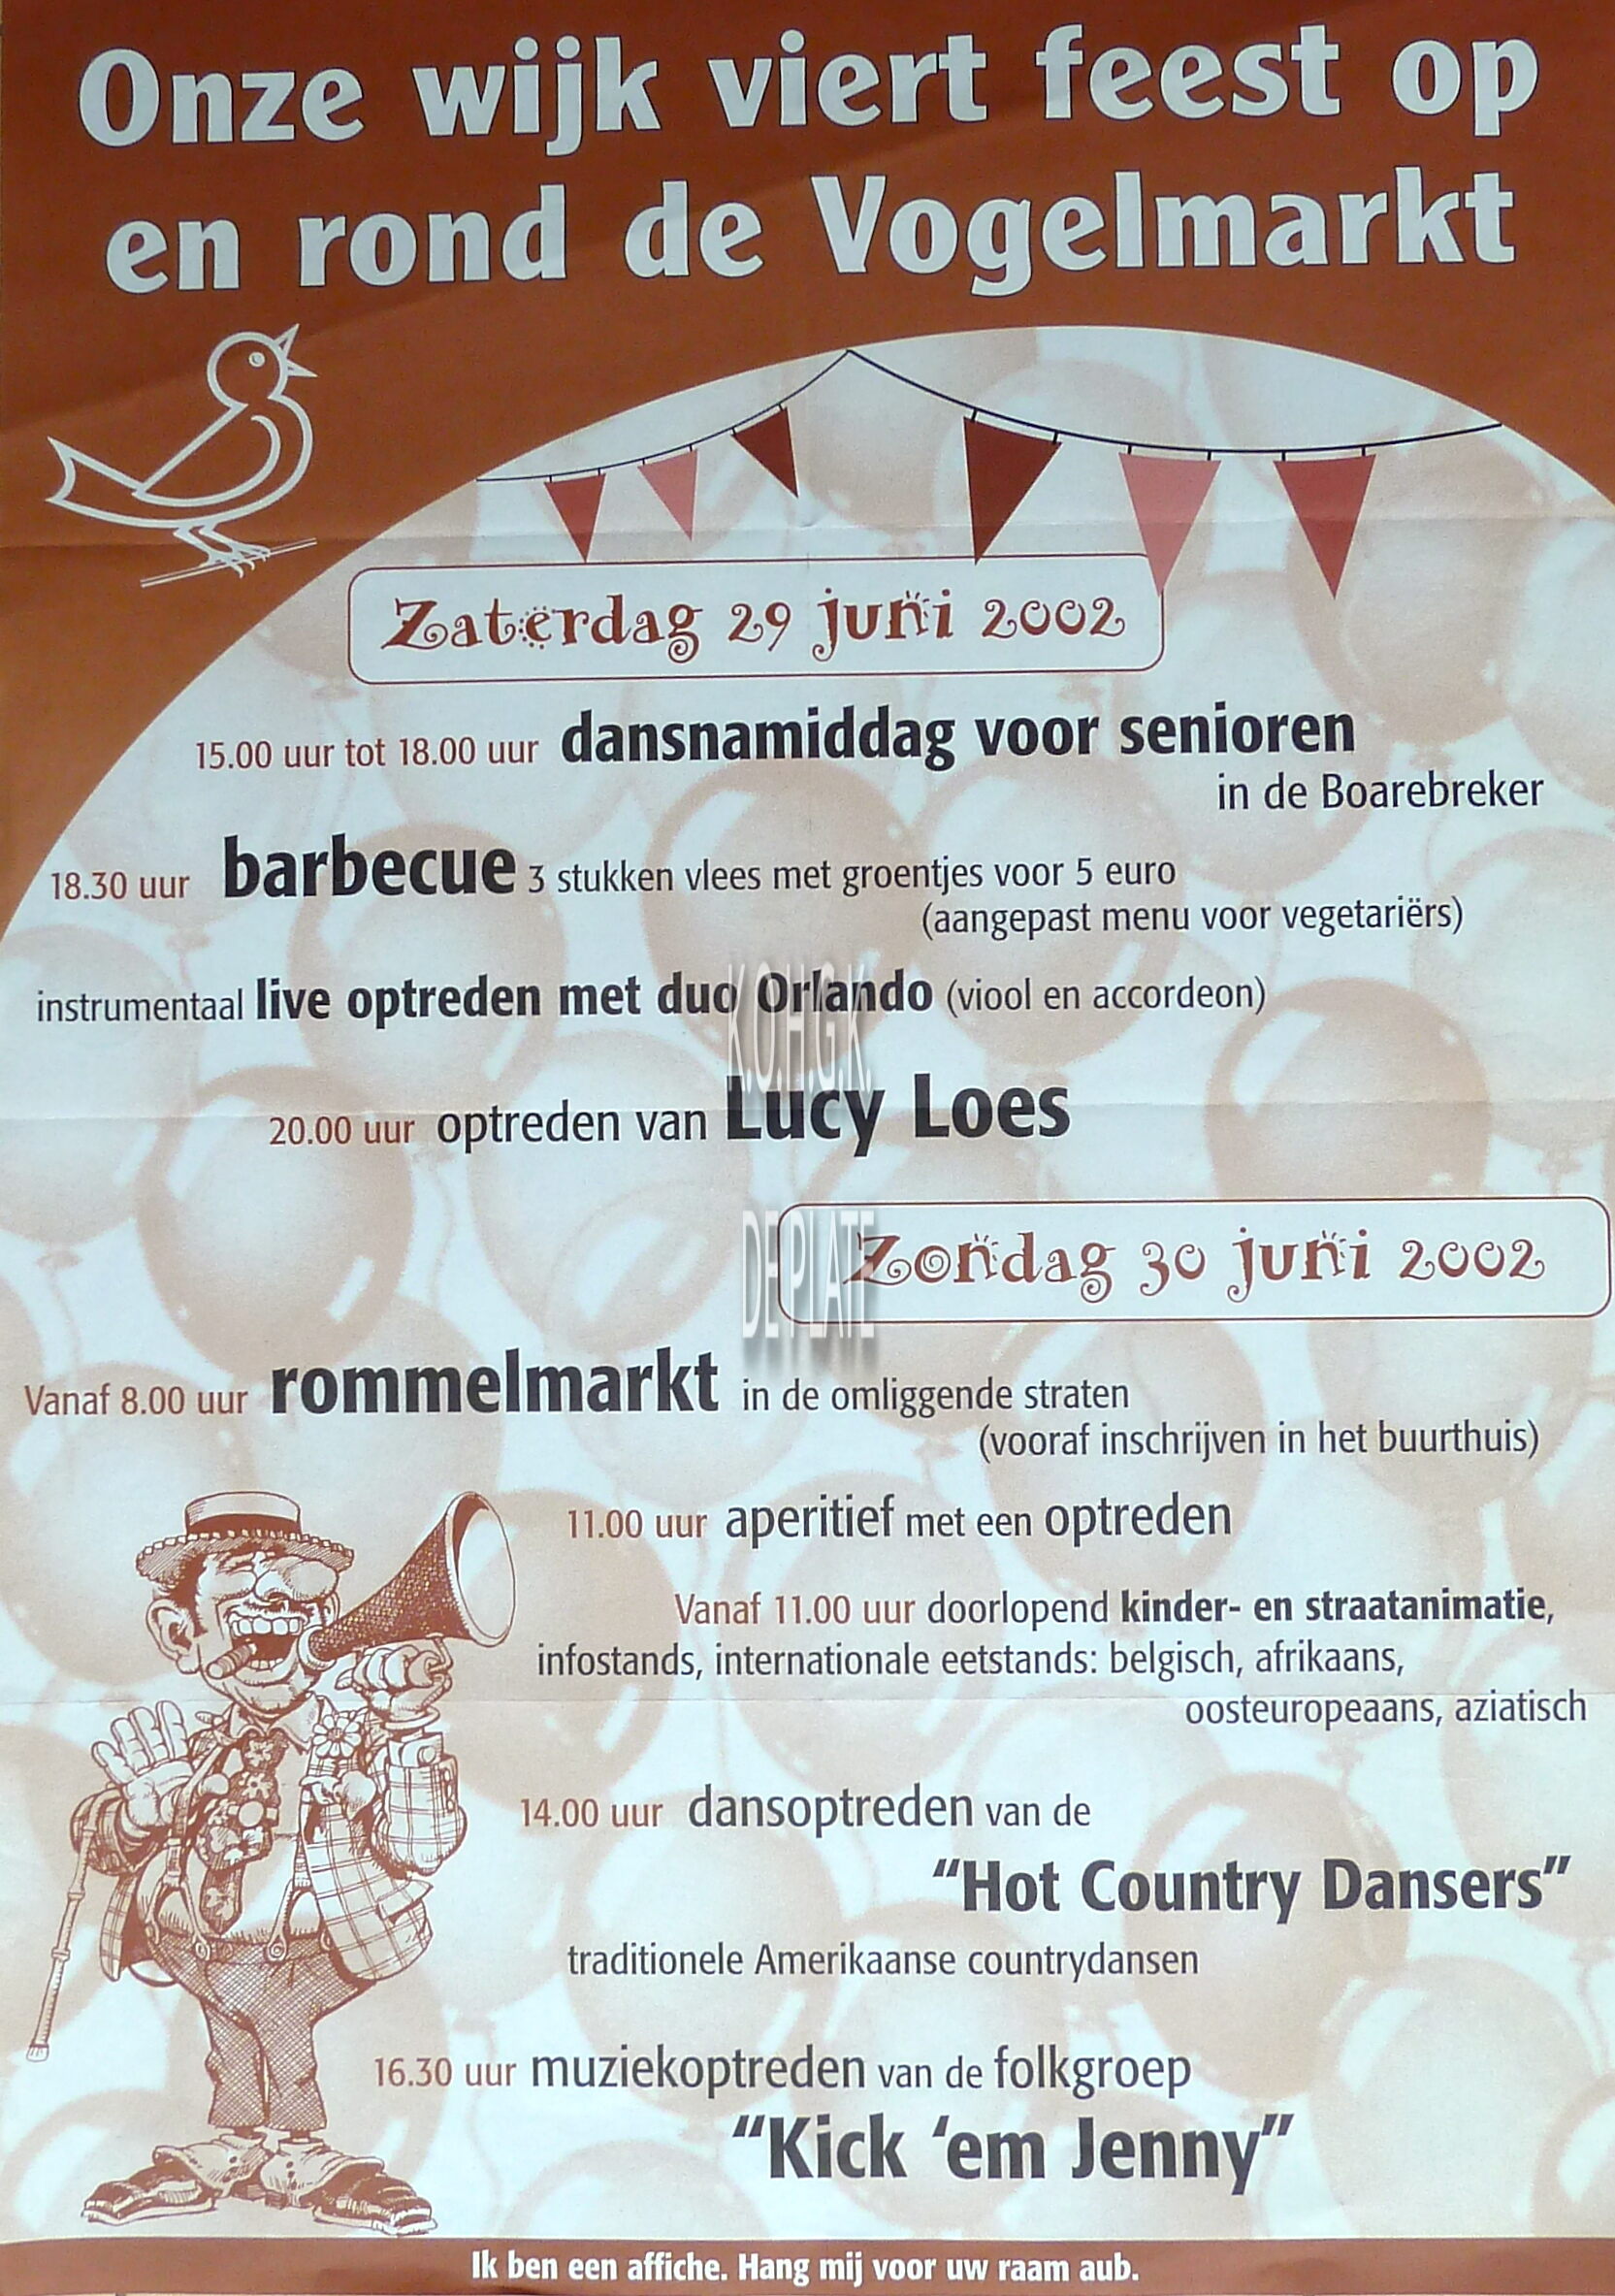 Onze wijk viert feest op
en rond de Vogelmarkt
Zaterdag 29 juni 2002
15.00 uur tot 18.00 uur dansnamiddag voor senioren
in de Boarebreker
18.30 uur barbecue 3 stukken vlees met groentjes voor 5 euro
(aangepast menu voor vegetariërs)
instrumentaal live optreden met duo Orlando (viool en accordeon)
K.O.H.G.K.
20.00 uur optreden van Lucy Loes
DE PLATE
Zondag 30 juni 2002
Vanaf 8.00 uur rommelmarkt in de omliggende straten
(vooraf inschrijven in het buurthuis)
11.00 uur aperitief met een optreden
Vanaf 11.00 uur doorlopend kinder- en straatanimatie,
infostands, internationale eetstands: belgisch, afrikaans,
oosteuropeaans, aziatisch
14.00 uur dansoptreden van de
“Hot Country Dansers”
traditionele Amerikaanse countrydansen
16.30 uur muziekoptreden van de folkgroep
“Kick ‘em Jenny”
Ik ben een affiche. Hang mij voor uw raam aub.